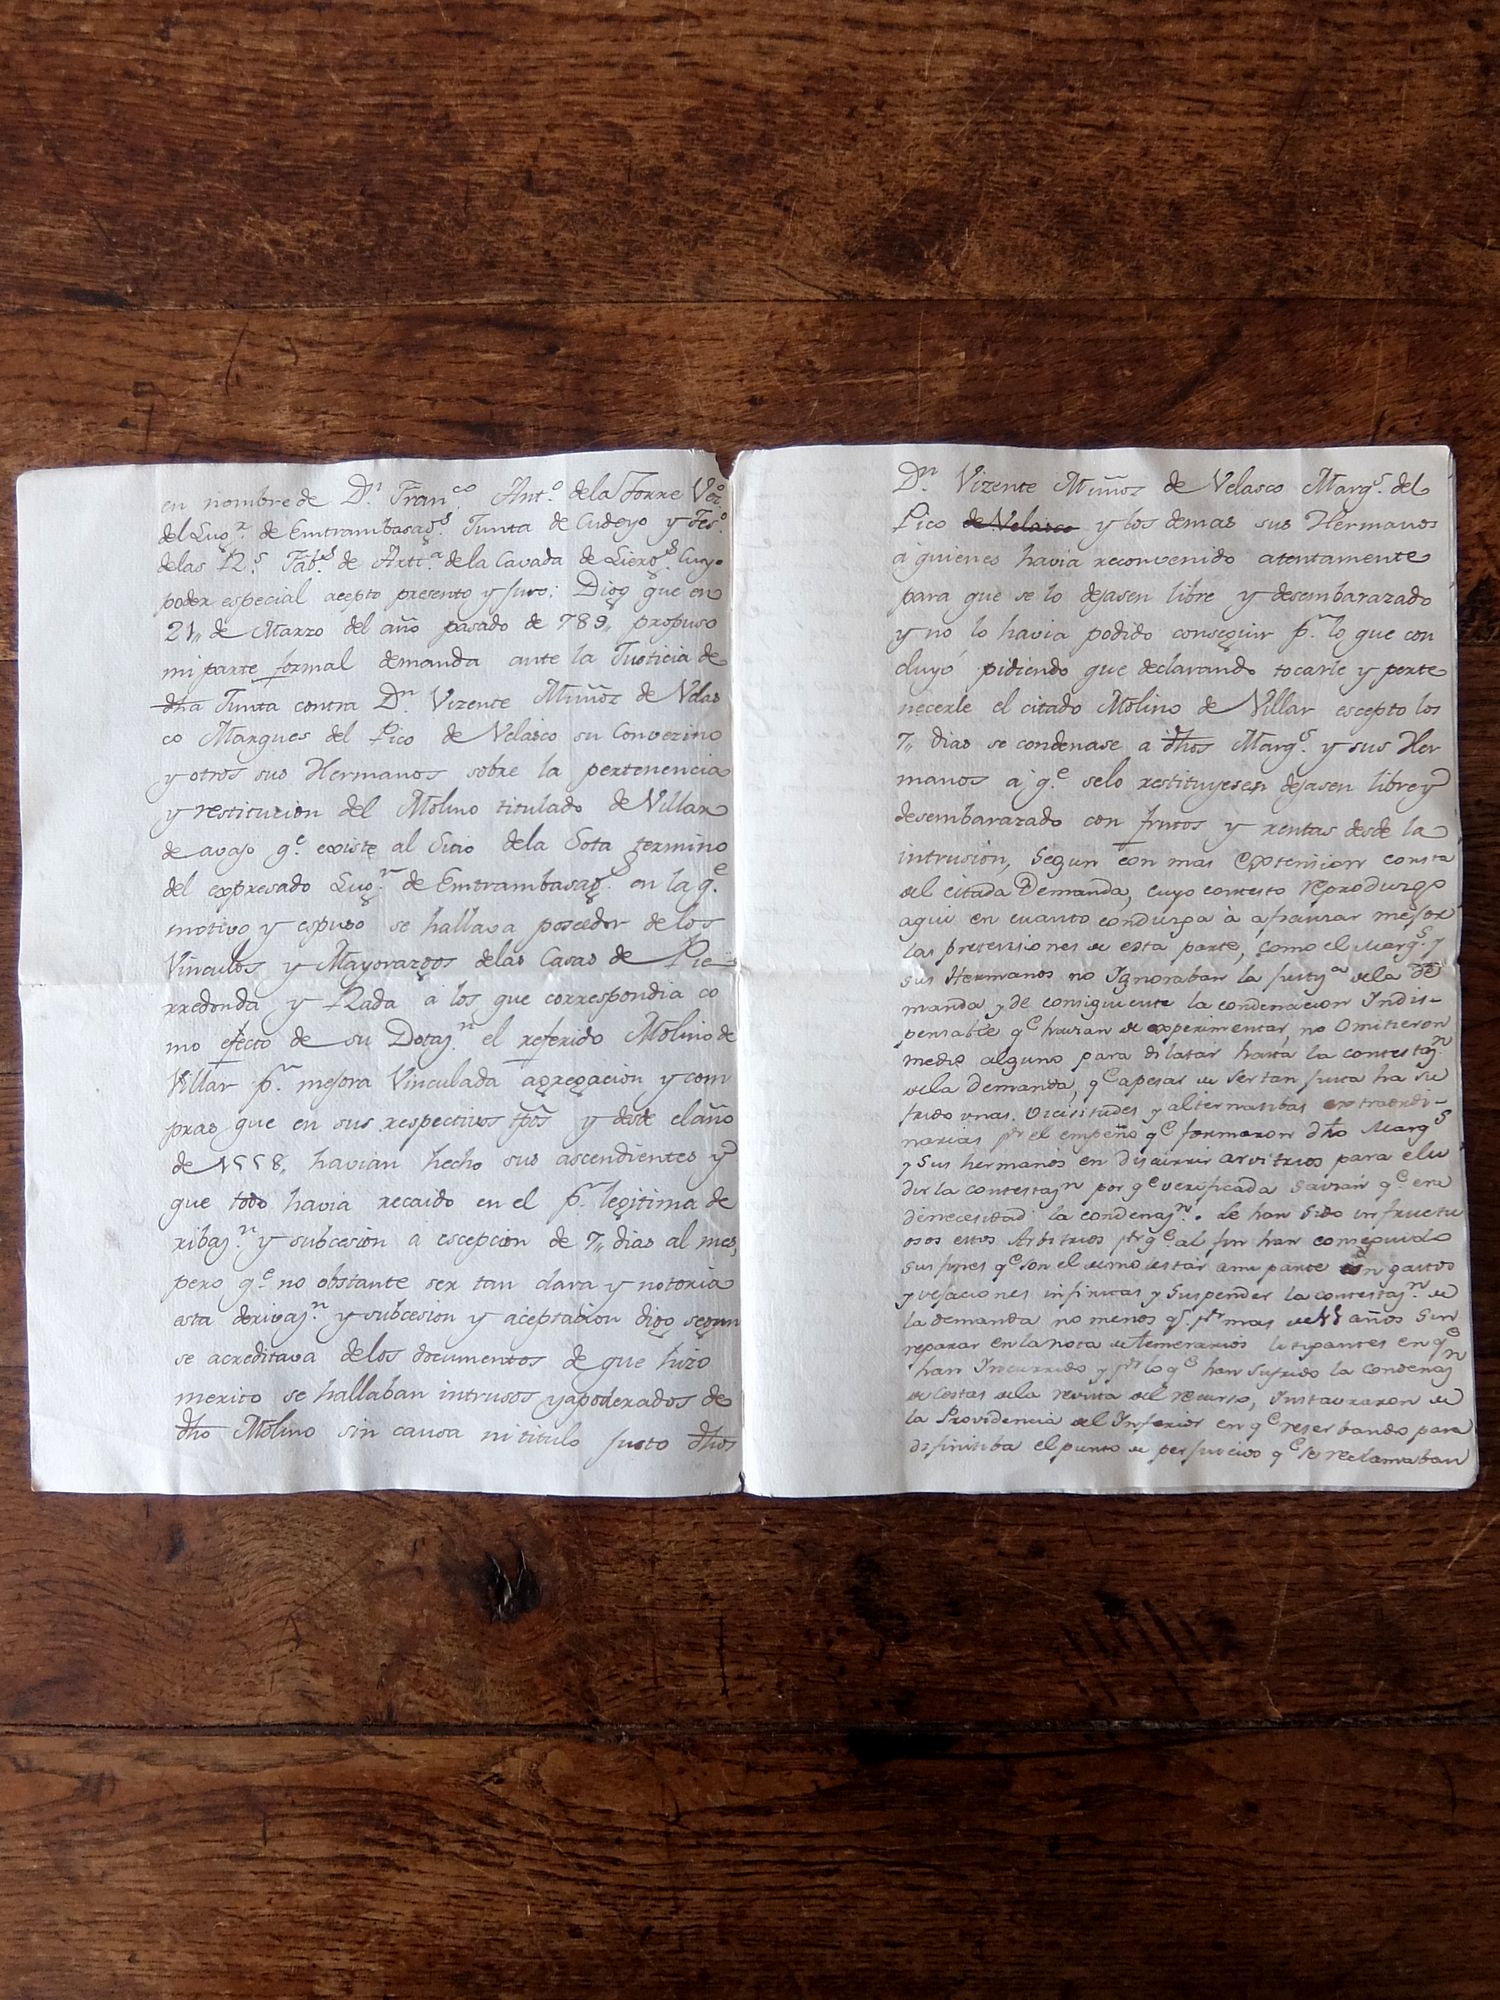 en nombre de Dn. Franco. Anto. de la Torre Vezo.
del Lugr. de Emtrambasags. Junta de Cudeyo y Teso.
delas Rs. Fabs. de Arta. de la Cavada de Liergs. Cuyo
poder especial acepto presento y juro: Digo que en
21,, de Marzo del año pasado de 789,, propuso
mi parte formal demanda ante la Justicia de
dha Junta contra Dn. Vizente Muñoz de Velas
co Marques del Pico de Velasco su Convezino
y otros sus Hermanos sobre la pertenencia
y restitucion del Molino titulado de Villar
de avajo qe. existe al Sitio de la Sota termino
del expresado Lugr. de Emtrambasags. en la qe.
motivo y espuso se hallava poseedor de los
Vinculos y Mayorazgos delas Casas de Pie=
rredonda y Rada a los que correspondia co
mo efecto de su Dotazn. el referido Molino de
Villar pr. mejora Vinculada agregacion y com
pras que en sus respectivos tpos y desde el año
de 1558,, havian hecho sus ascendientes y
que todo havia recaido en el pr. legitima de
ribazn. y subcesion a escepcion de 7,, dias al mes,
pero qe. no obstante ser tan clara y notoria
esta derivazn. y subcesion y aceptabion digo segun
se acreditava delos documentos de que hizo
merito se hallaban intrusos yapoderados de
dho Molino sin causa ni titulo justo dhos
Dn. Vizente Muñoz de Velasco Margs. del
Pico de Velasco y los demas sus Hermanos
a quienes havia reconvenido atentamente
para que se lo dejasen libre y desembarazado
y no lo havia podido conseguir pr. lo que con
cluyó pidiendo que declarando tocarle y perte
necerle el citado Molino de Villar escepto los
7,, dias se condenase a dhos Margs. y sus Her
manos a qe. selo restituyesen dejasen libre y
desembarazado con frutos y rentas desde la
intrusión, segun con mas extension consta
del citada Demanda, cuyo contesto reproduzgo
aqui en cuanto conduzga à afianzar mejor
las pretensiones de esta parte, como el Margs. y
sus Hermanos no Ignoraban la justza. dela De
manda y de consiguiente la condenacion Indis-
pensable qe havian de experimentar, no Omitieron
medio alguno para dilatar hasta la contestazn.
dela Demanda, qe apesar de ser tan justa ha su
frido unas Vicisitudes y alternatibas extraordi-
narias pr el empeño qe formaron dho Margs
y sus hermanos en discurrir arvitrios para elu
dir la contestazn por qe verificada savian qe era
de necesidad la condenazn. Le han sido infructu
osos estos Arbitrios pr qe al fin han conseguido
sus fines qe son el demolestar ami parte con gastos
y vejaciones infinitas y suspender la contestazn. de
la demanda no menos qe. pr mas de 11 años sin
reparar en la nota de temerarios litigantes en qe
han Incurrido y pr lo qe han sufrido la condenazn
de costas dela revista del recurso, Instauraron de
la Providencia del Inferior en qe reserbando para
difinitiba el punto de perjuicios qe se reclamaban